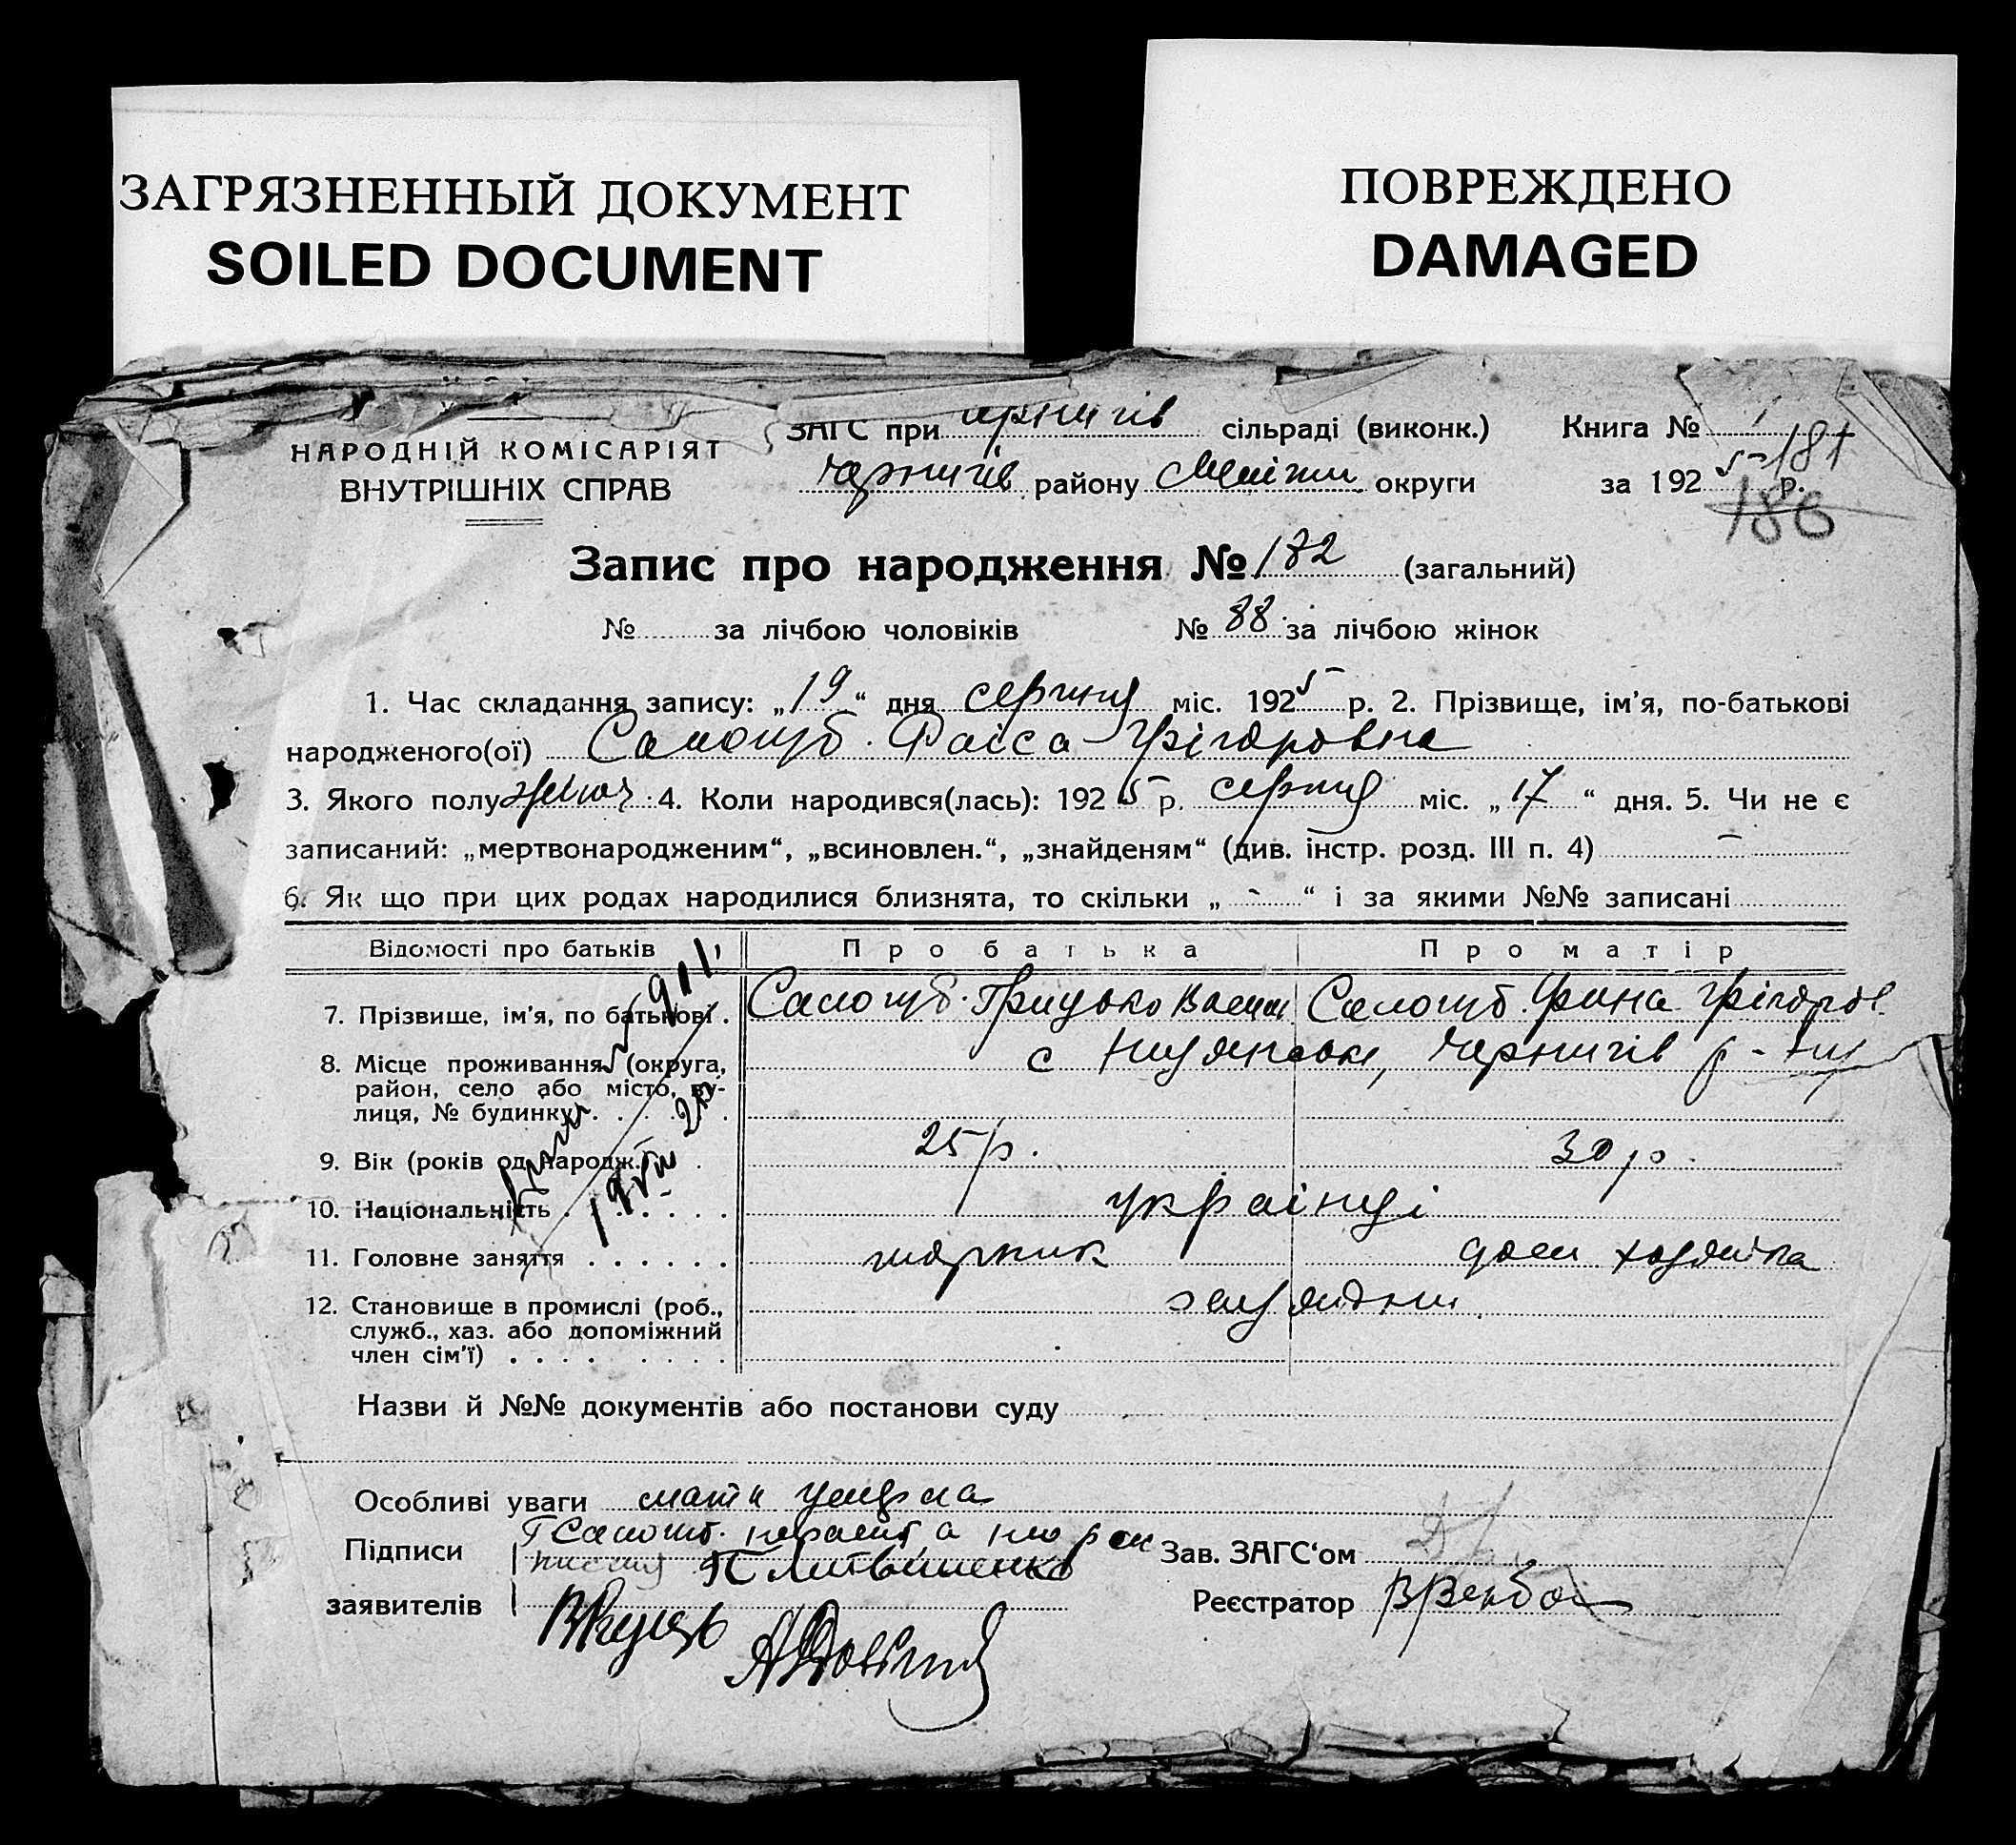 ЗАГРЯЗНЕННЫЙ ДОКУМЕНТ
SOILED DOCUMENT
ПОВРЕЖДЕНО
DAMAGED
НАРОДНІЙ КОМІСАРІЯТ
ВНУТРІШНІХ СПРАВ
ЗАГС при Чернигів сільраді (виконк.)
Чернигів району округи
Книга №
за 1925 р.
181
186
Запис про народження № 182 (загальний)
№ за лічбою чоловіків № 88 за лічбою жінок
1. Час складання запису: „19“ дня серпня міс. 1925 р. 2. Прізвище, ім'я, по-батькові
народженого(ої) Салогуб Фаіса Грігоровна
3. Якого полу жіноч 4. Коли народився(лась): 1925 р. серпня міс. „17“ дня. 5. Чи не є
записаний: „мертвонародженим“, „всиновлен.“, „знайденям“ (див. інстр. розд. III п. 4) –
6. Як що при цих родах народилися близнята, то скільки „ - “ і за якими №№ записані
Відомості про батьків Про батька Про матір
7. Прізвище, ім'я, по батькові . Салогуб Грицько Васил Салогуб Фрина Грігоров.
8. Місце проживання (округа, с Чернигів р-ну
район, село або місто, ву-
лиця, № будинку . . . . .
9. Вік (років од народж.) . 25 р. 30 р.
10. Національність . . . . . . українці
11. Головне заняття . . . . . . дом хозяйка
12. Становище в промислі (роб.,
служб., хаз. або допоміжний
член сім'ї) . . . . . . . .
Назви й №№ документів або постанови суду
Особливі уваги мати умерла
Підписи Салогуб
заявителів
Зав. ЗАГС‘ом
Реєстратор